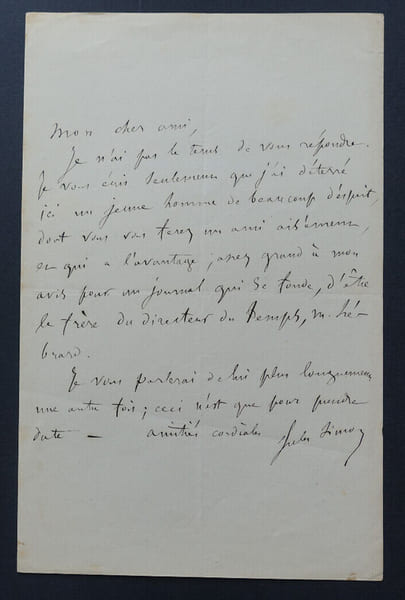 Mon cher ami,
Je n'ai pas le temps de vous répondre.
Je vous écris seulement que j'ai déterré
ici un jeune homme de beaucoup d'esprit,
dont vous vous ferez un ami aisément,
et qui a l'avantage, assez grand à mon
avis pour un journal qui se fonde, d'être
le frère du directeur du Temps, M. Hé-
brard.
Je vous parlerai de lui plus longuement
une autre fois ; ceci n'est que pour prendre
date — amitiés cordiales
Jules Simon